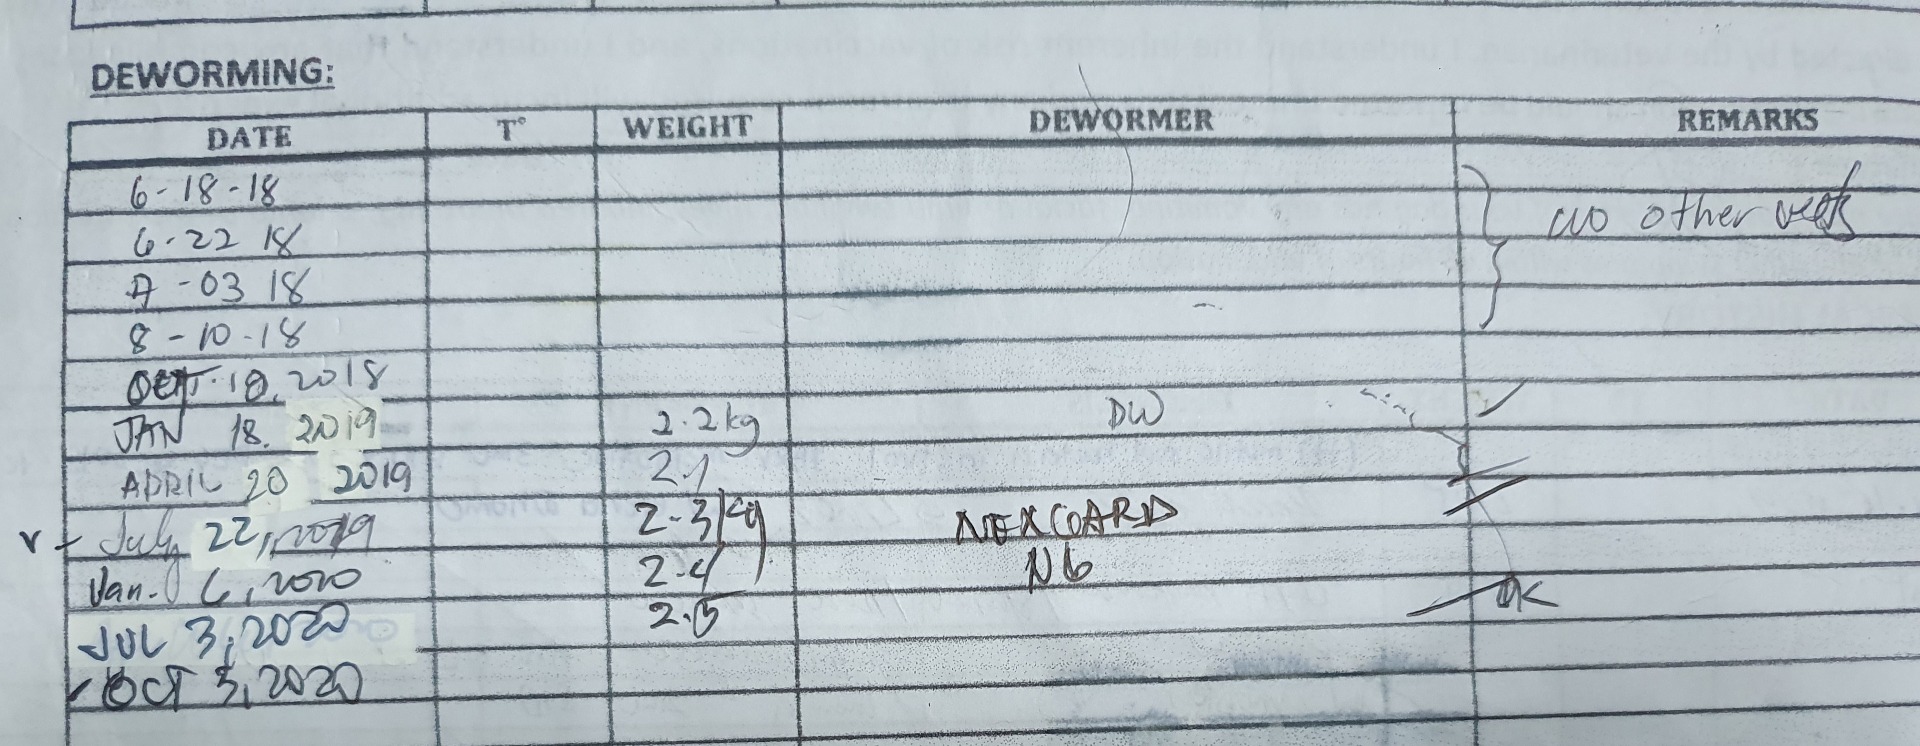 DEWORMING:
DATE T° WEIGHT DEWORMER REMARKS
6-18-18
6-22 18 other
-03 18
8-10-18
10, 2018
JAN 18. 2019 2.2kg DW
APRIL 20 2019 2.1
July 22, 2019 2.3kg NEXGARD
Jan. 6, 2020 2.4
JUL 3, 2020 2.5
OCT 3, 2020